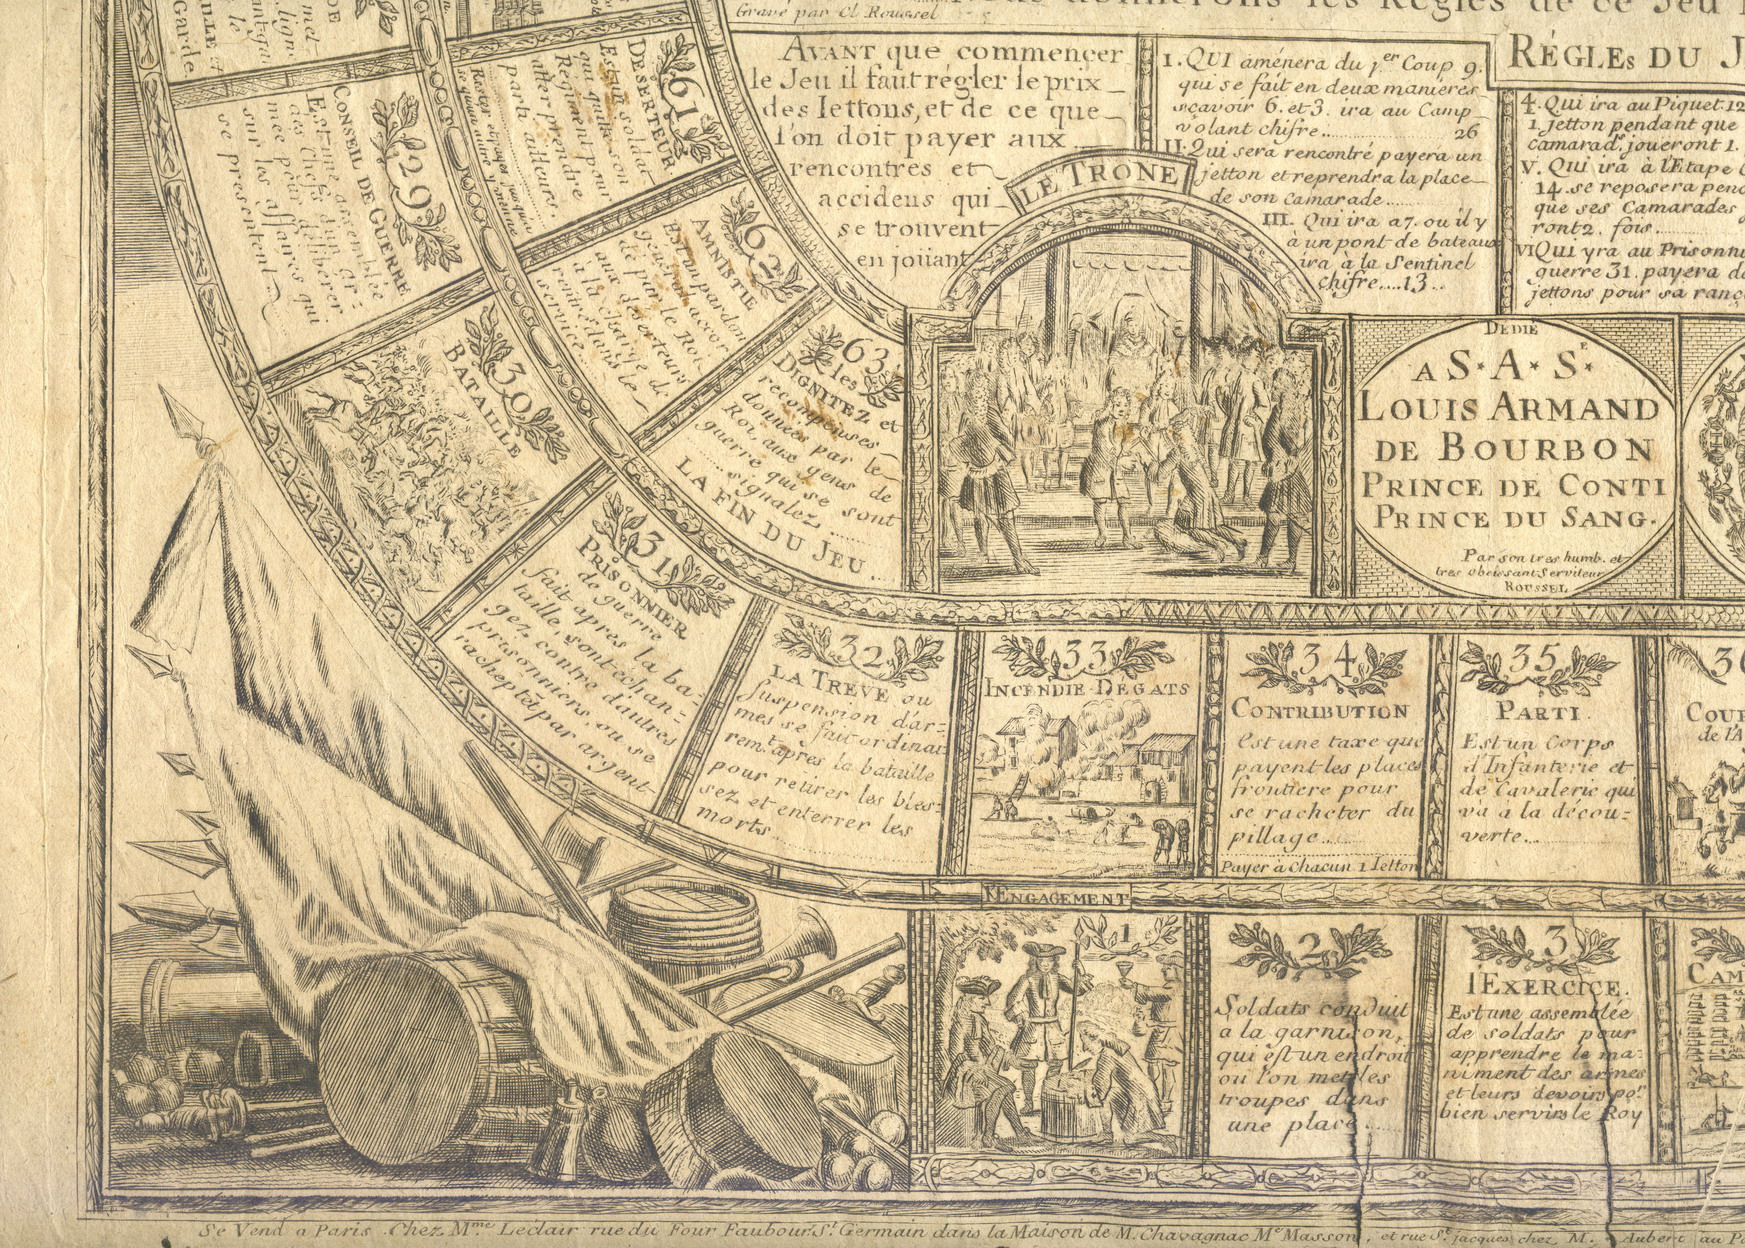 Gravé par Cl Roussel
donnerons les Regles de ce Jeu
AVANT que commencer
le Jeu il faut régler le prix
des Iettons, et de ce que
l'on doit payer aux
rencontres et
accidens qui
se trouvent
en joüant
I. QUI aménera du 1er Coup 9.
qui se fait en deux manieres
sçavoir 6. et 3. ira au Camp
volant chifre........ 26
II. Qui sera rencontré payera un
jetton et reprendra la place
de son camarade......
III. Qui ira a 7. ou il y
à un pont de bateaux
ira à la Sentinel
chifre....13..
RÉGLEs DU J
4. Qui ira au Piquet 12
1. jetton pendant que
camarad. joueront 1.
V. Qui ira à l'Etape
14. se reposera pend
que ses Camarades
ront 2. fois.
VI Qui yra au Prisonn
guerre 31. payera d
jettons pour sa ranç
LE TRONE
DEDIÉ
A S. A. Se
LOUIS ARMAND
DE BOURBON
PRINCE DE CONTI
PRINCE DU SANG.
Par son tres humb. et
tres obeissant Serviteur
ROUSSEL
Garde
29
CONSEIL DE GUERRE
Est une assemblée
des Chefs d'une Ar:
mée pour deliberer
sur les affaires qui
se presentent
30
BATAILLE
61
DESERTEUR
Est un soldat
qui quitte son
Regiment pour
aller prendre
parti ailleurs.
62
AMNISTIE
Est un pardon
general accor
dé par le Roi
aux deserteurs
à la charge de
rentrer dans le
service...
63
les
DIGNITEZ et
recompenses
données par le
Roi, aux gens de
guerre qui se sont
signalez
LA FIN DU JEU..
31
PRISONNIER
de guerre
fait après la ba:
taille, sont échan:
gez contre d'autres
prisonniers, ou se
racheptēt par argent
32
LA TREVE ou
suspension d'ar-
mes se fait ordinai
remt. après la bataille
pour retirer les bles:
sez et enterrer les
morts...
33
INCENDIE DEGATS
34
CONTRIBUTION
Est une taxe que
payent les places
frontiere pour
se racheter du
pillage....
Payer à chacun 1 Ietton
35
PARTI.
Est un Corps
d'Infanterie et
de Cavalerie qui
va à la décou:
verte...
COUR
de l'A
L'ENGAGEMENT
1
2
Soldats conduit
a la garnison,
qui est un endroit
ou l'on met les
troupes dans
une place.....
3
l'EXERCICE.
Est une assemblée
de soldats pour
apprendre le ma:
niment des armes
et leurs devoirs por.
bien servir le Roy
CAM
Se Vend a Paris Chez Mme. Leclair rue du Four Faubour St. Germain dans la Maison de M. Chavagnac Me Masson, et rue St. jacques chez M. Aubert au